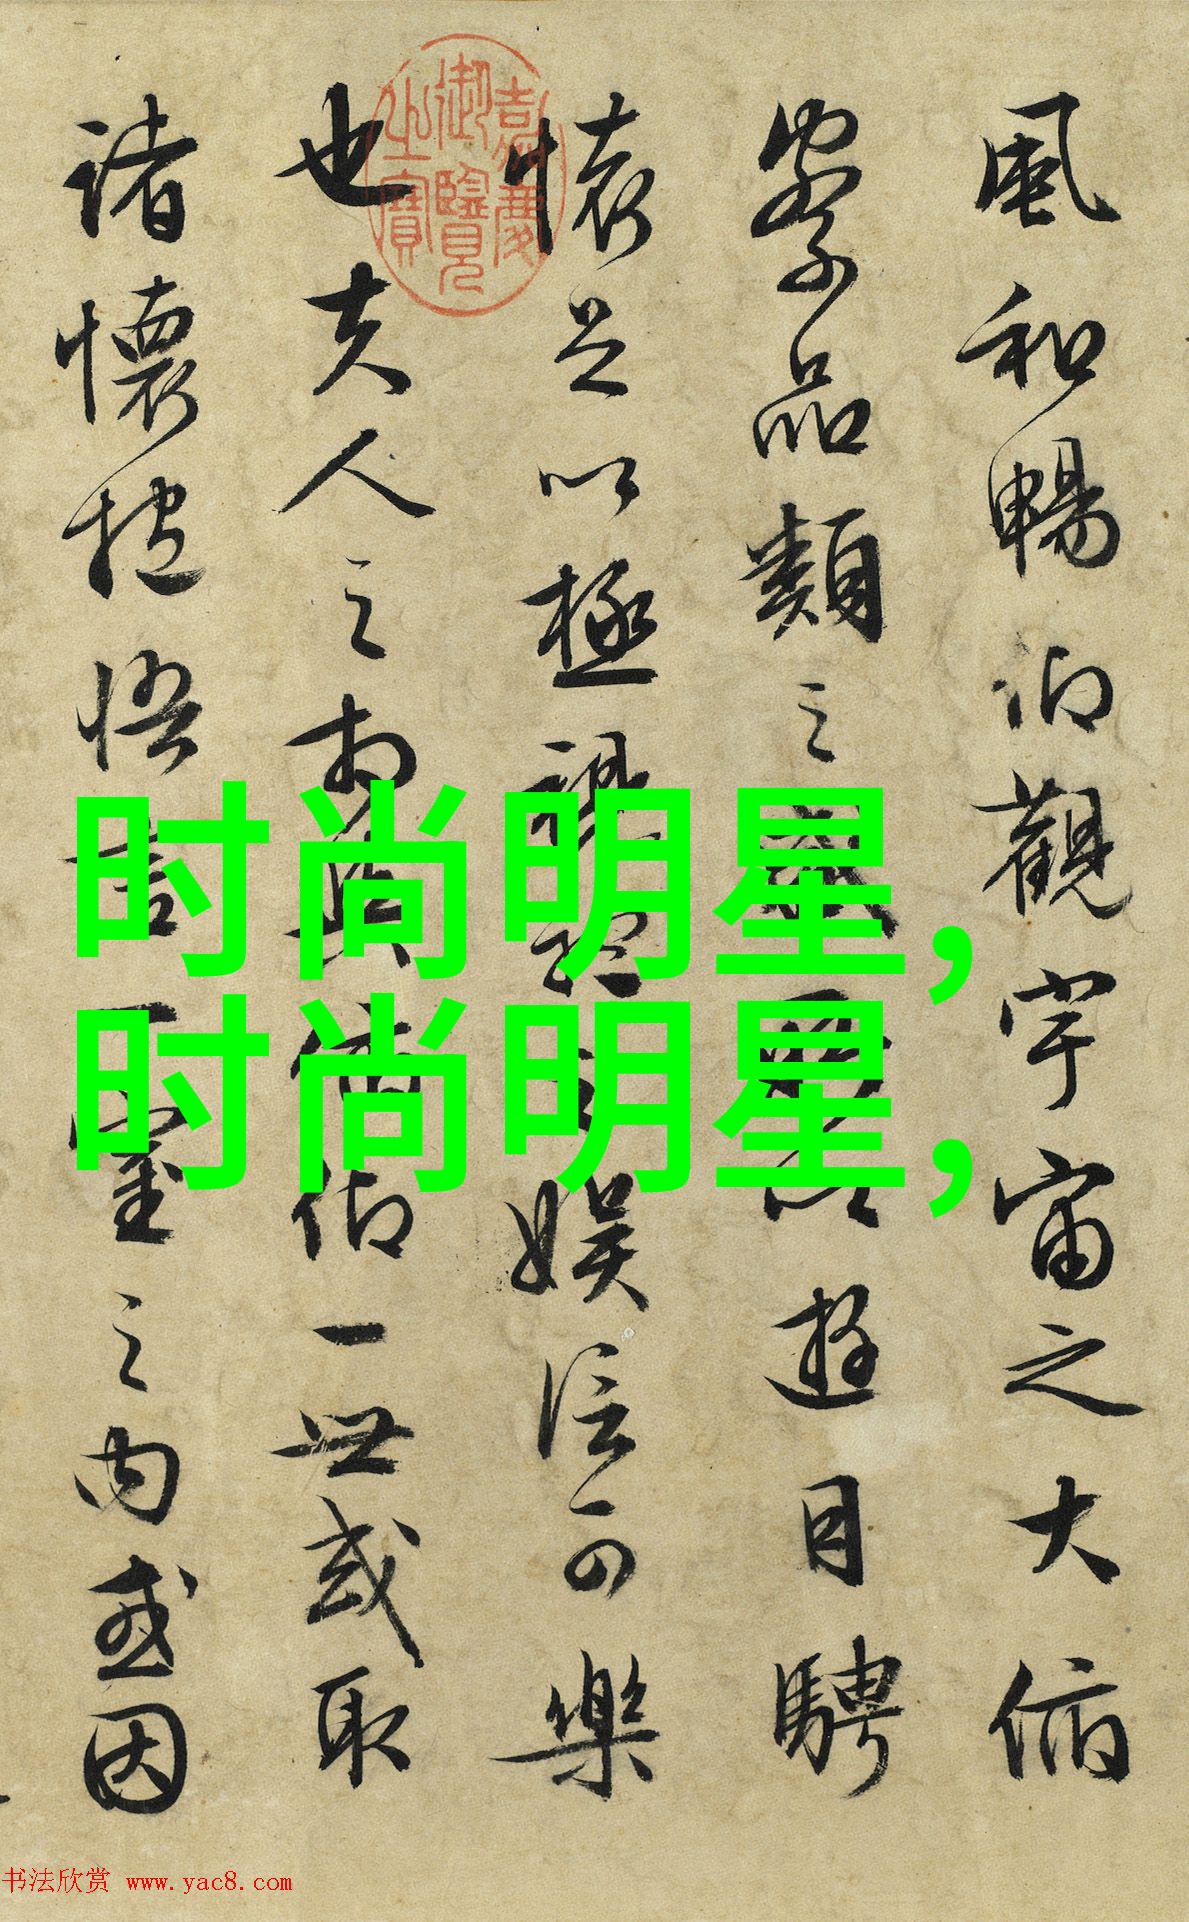 風和暢仰觀宇宙之大俯
察品類之盛所以遊目騁
懷足以極視聽之娛信可樂
也夫人之相與俯仰一世或取
諸懷抱悟言一室之內或因
嘉慶御覽之寶
时尚明星,
时尚明星,
书法欣赏 www.yac8.com